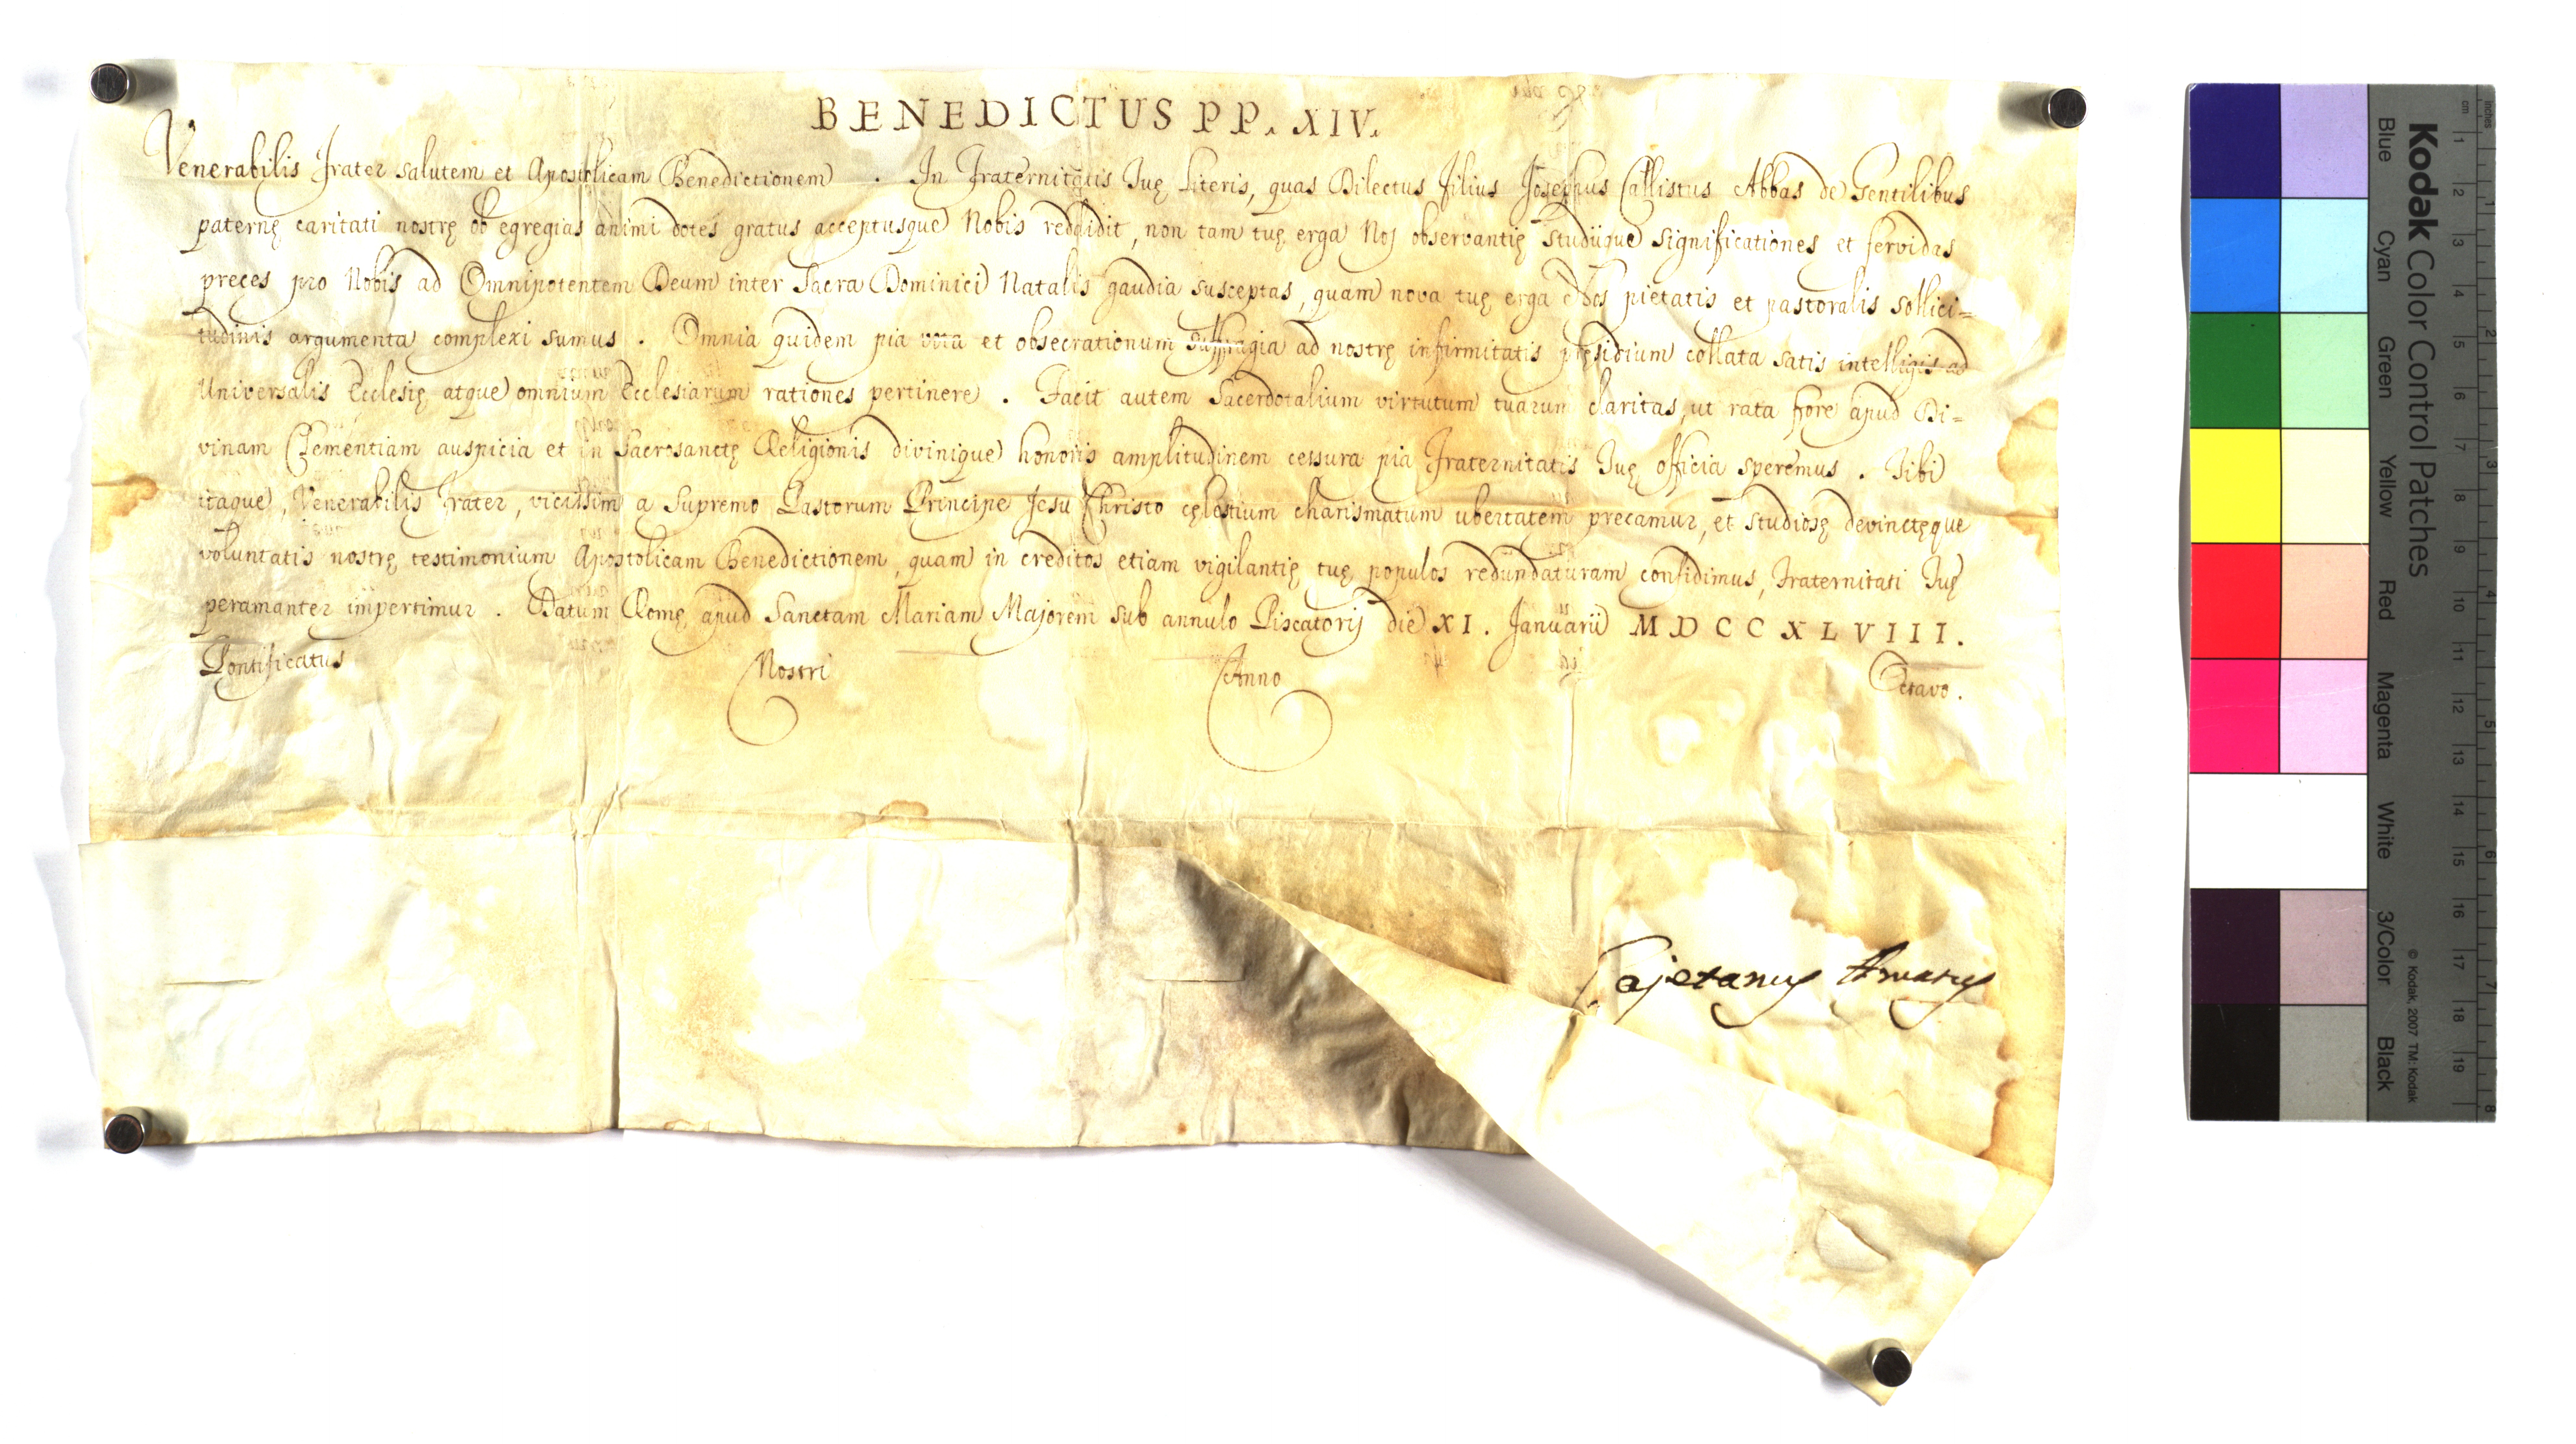 BENEDICTUS PP. XIV.
Venerabilis Frater salutem et Apostolicam Benedictionem . In Fraternitatis Tuę Literis, quas Dilectus Filius Josephus Callistus Abbas de Gentilibus
paternę caritati nostrę ob egregias animi dotes gratus acceptusque Nobis reddidit, non tam tuę erga Nos observantię studiique significationes et fervidas
preces pro Nobis ad Omnipotentem Deum inter Sacra Dominici Natalis gaudia susceptas, quam nova tuę erga Nos pietatis et pastoralis sollici=
tudinis argumenta complexi sumus . Omnia quidem pia vota et obsecrationum suffragia ad nostrę infirmitatis pręsidium collata satis intelligis ad
Universalis Ecclesię atque omnium Ecclesiarum rationes pertinere . Facit autem Sacerdotalium virtutum tuarum claritas, ut rata fore apud Di=
vinam Clementiam auspicia et in Sacrosanctę Religionis divinique honoris amplitudinem cessura pia Fraternitatis Tuę officia speremus . Tibi
itaque, Venerabilis Frater, vicissim a Supremo Pastorum Principe Jesu Christo cęlestium charismatum ubertatem precamur, et studiosę devinctęque
voluntatis nostrę testimonium Apostolicam Benedictionem, quam in creditos etiam vigilantię tuę populos redundaturam confidimus, Fraternitati Tuę
peramanter impertimur . Datum Romę apud Sanctam Mariam Majorem sub annulo Piscatoris die XI. Januarii MDCCXLVIII.
Pontificatus Nostri Anno Octavo.
Cajetanus Amatus
Kodak Color Control Patches
Blue Cyan Green Yellow Red Magenta White 3/Color Black
© Kodak, 2007 TM: Kodak
inches 1 2 3 4 5 6 7 8
cm 1 2 3 4 5 6 7 8 9 10 11 12 13 14 15 16 17 18 19